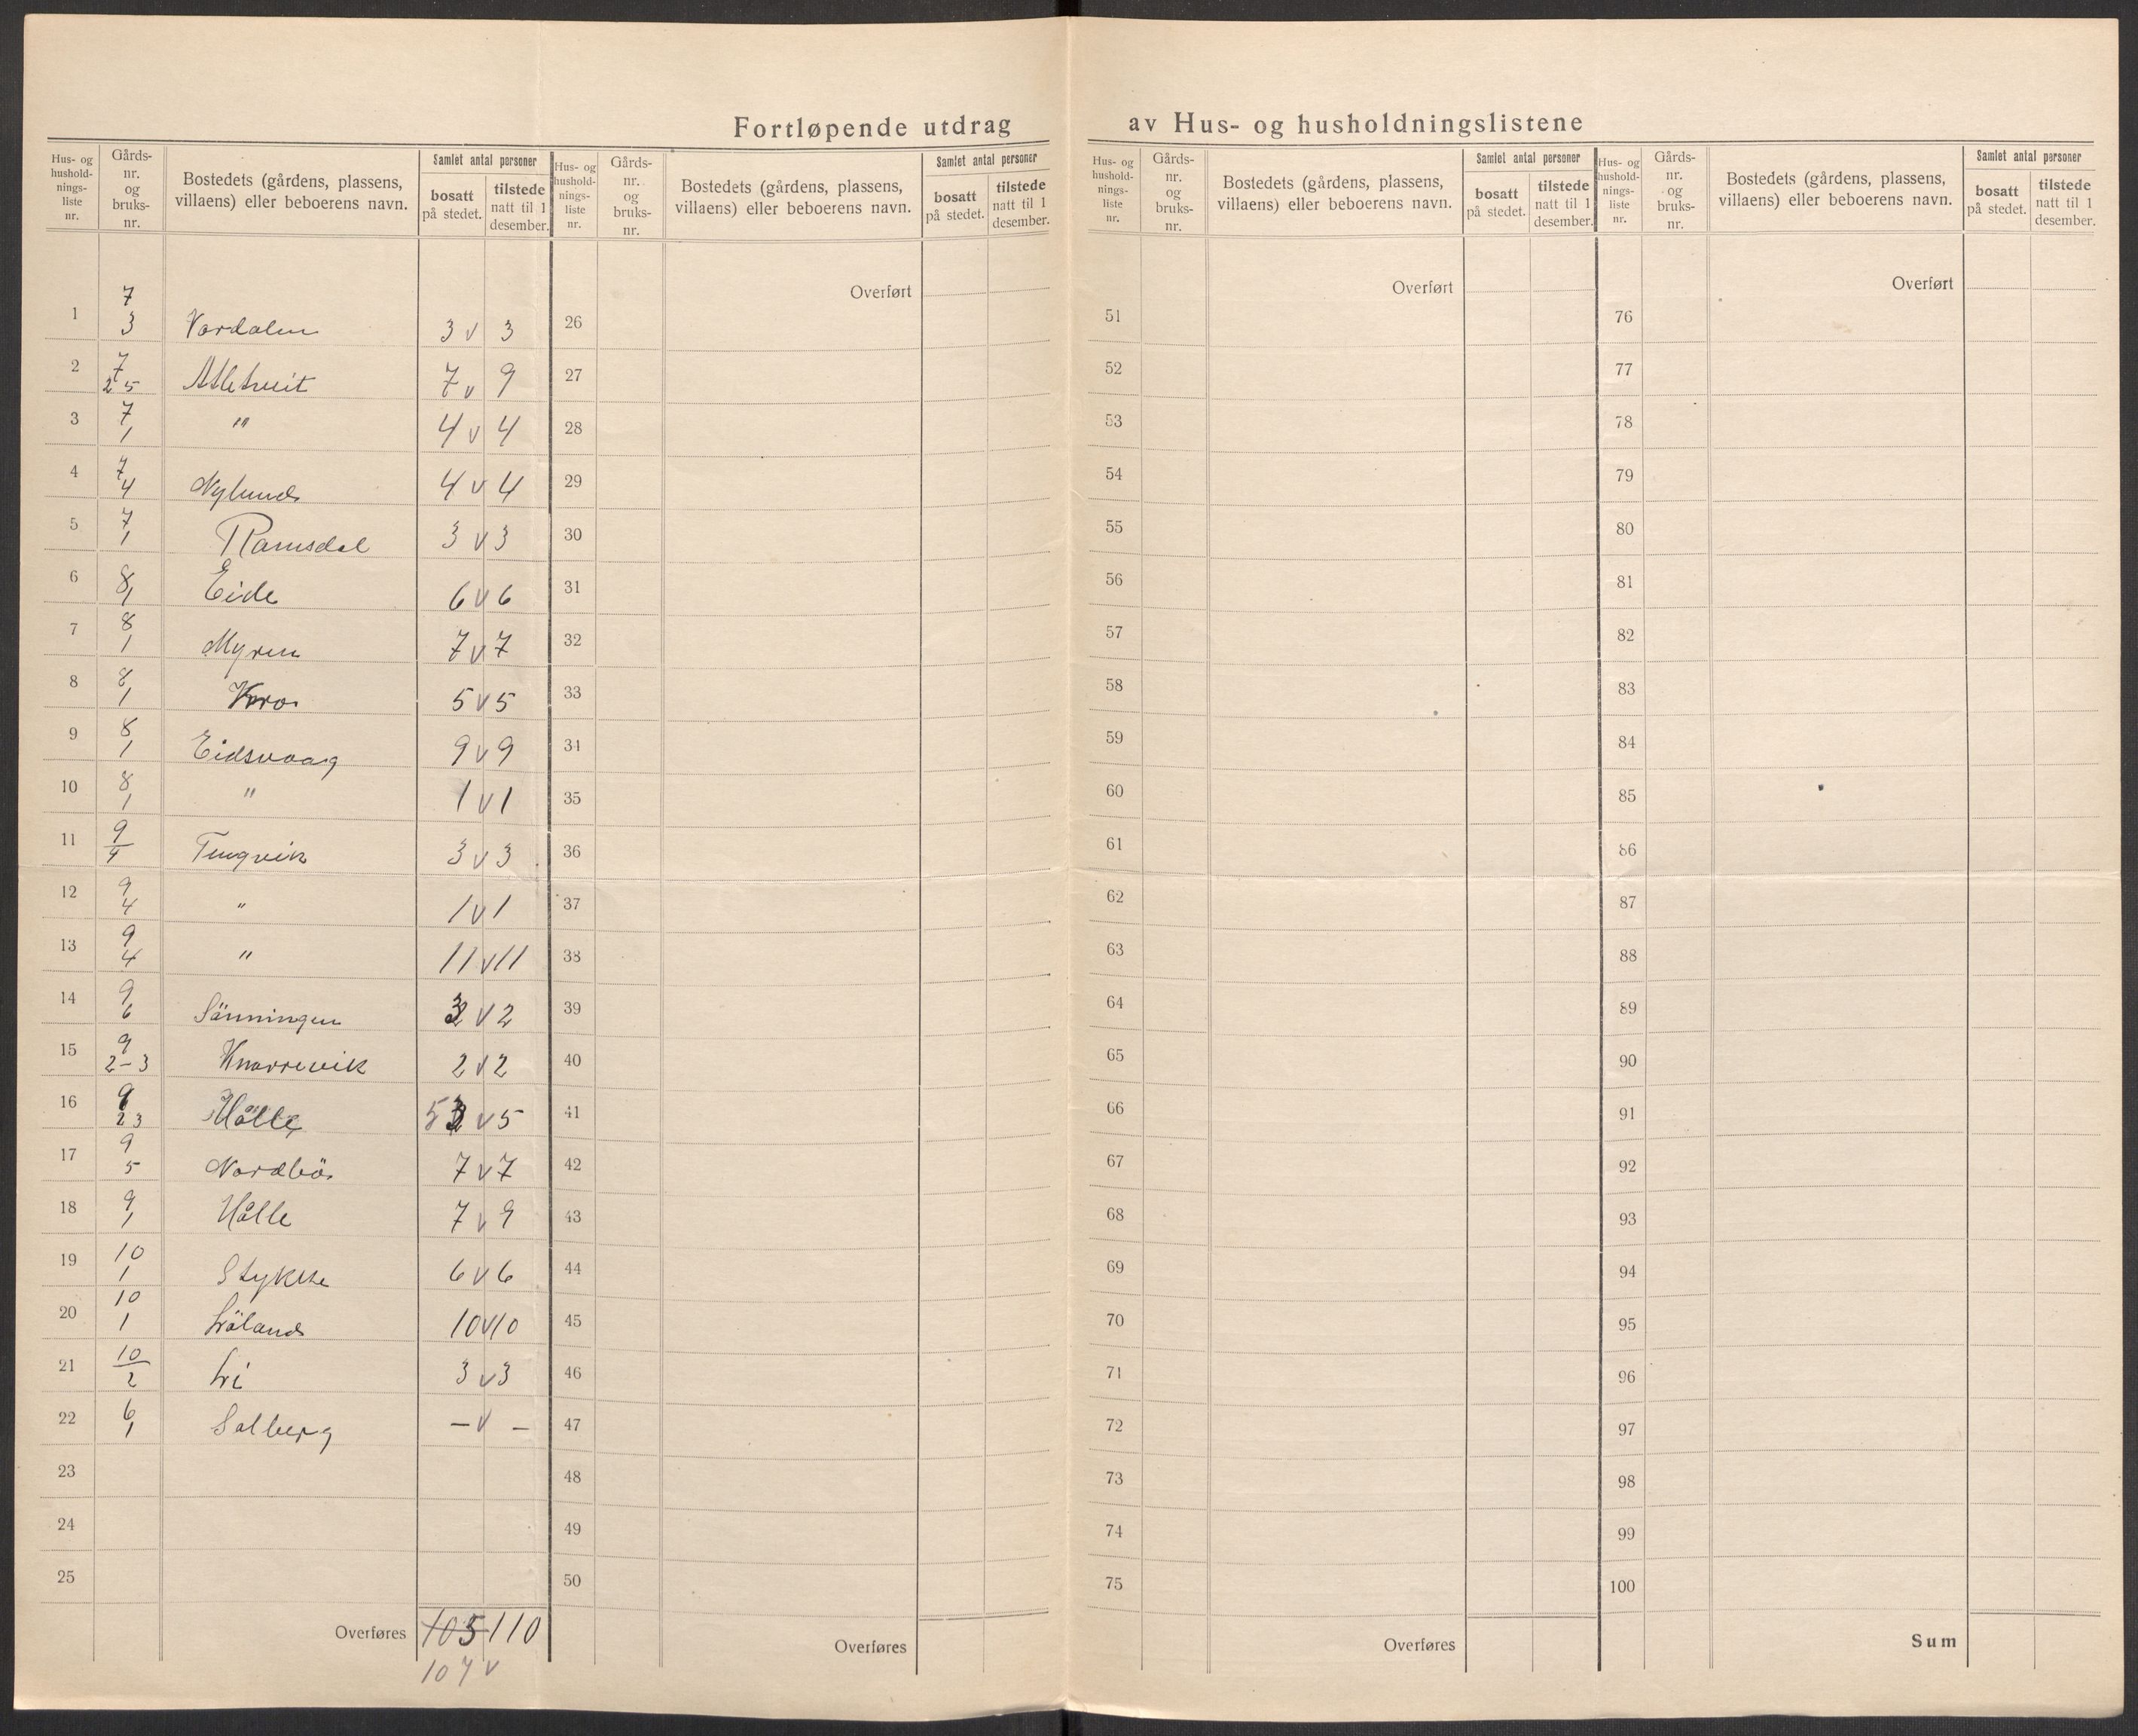 Fortløpende utdrag av Hus- og husholdningslistene
Hus- og hushold-nings-liste nr. Gårds-nr. og bruks-nr. Bostedets (gårdens, plassens, villaens) eller beboerens navn. Samlet antal personer bosatt på stedet. tilstede natt til 1 desember.
Hus- og hushold-nings-liste nr. Gårds-nr. og bruks-nr. Bostedets (gårdens, plassens, villaens) eller beboerens navn. Samlet antal personer bosatt på stedet. tilstede natt til 1 desember.
Hus- og hushold-nings-liste nr. Gårds-nr. og bruks-nr. Bostedets (gårdens, plassens, villaens) eller beboerens navn. Samlet antal personer bosatt på stedet. tilstede natt til 1 desember.
Hus- og hushold-nings-liste nr. Gårds-nr. og bruks-nr. Bostedets (gårdens, plassens, villaens) eller beboerens navn. Samlet antal personer bosatt på stedet. tilstede natt til 1 desember.
1 7/3 Vardalen 3 v 3
2 7/2 5 7 v 9
3 7/1 " 4 v 4
4 7/4 Nylund 4 v 4
5 7/1 Ramsdal 3 v 3
6 8/1 Eide 6 v 6
7 8/1 Myren 7 v 7
8 8/1 5 v 5
9 8/1 Eidsvaag 9 v 9
10 8/1 " 1 v 1
11 9/4 Tengvik 3 v 3
12 9/4 " 1 v 1
13 9/4 " 11 v 11
14 9/6 Sänningen v 2
15 9/2-3 Knarrevik 2 v 2
16 9/2 3 Hålle 5 v 5
17 9/5 Nordbö 7 v 7
18 9/1 Hålle 7 v 9
19 10/1 Stykke 6 v 6
20 10/1 10 v 10
21 10/2 Li 3 v 3
22 6/1 Solberg – v –
23
24
25
Overføres 105 110
107 v
Overført
26
27
28
29
30
31
32
33
34
35
36
37
38
39
40
41
42
43
44
45
46
47
48
49
50
Overføres
Overført
51
52
53
54
55
56
57
58
59
60
61
62
63
64
65
66
67
68
69
70
71
72
73
74
75
Overføres
Overført
76
77
78
79
80
81
82
83
84
85
86
87
88
89
90
91
92
93
94
95
96
97
98
99
100
Sum